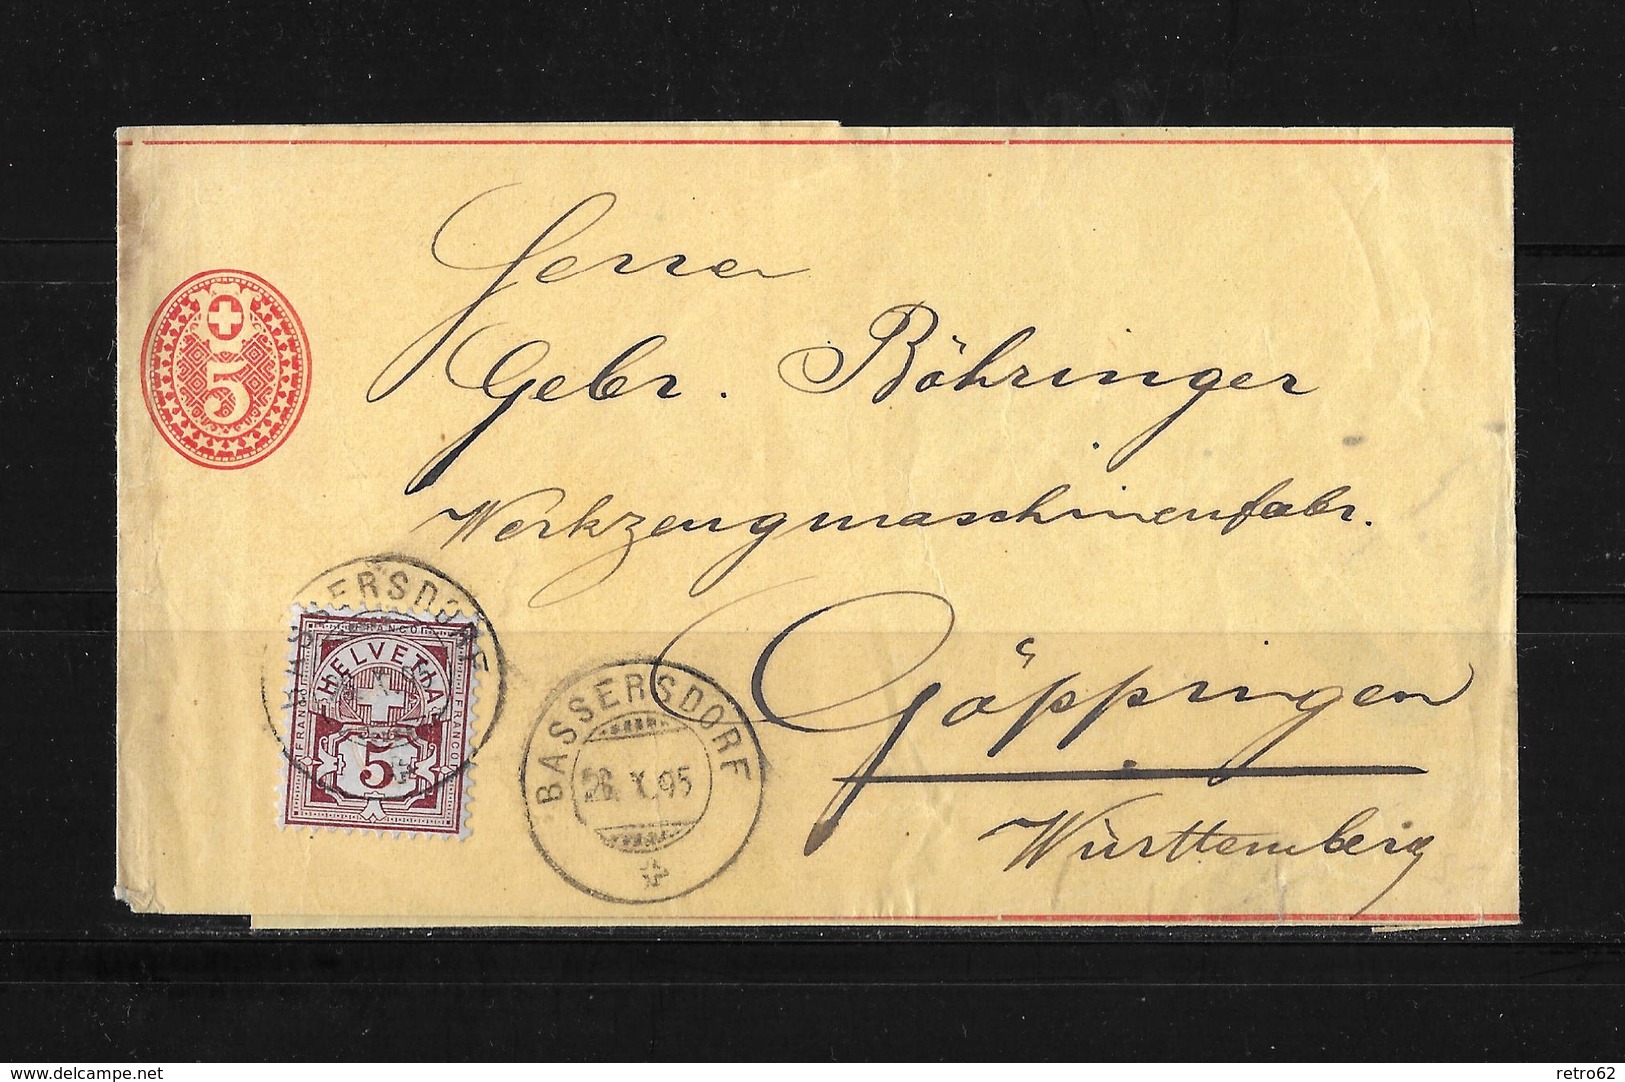 5
Herren
Gebr. Böhringer
Werkzeugmaschinenfabr.
Göppingen
Württemberg
BASSERSDORF
FRANCO
FRANCO
FRANCO
HELVETIA
5
BASSERSDORF
26. X. 95
delcampe.net
retro62